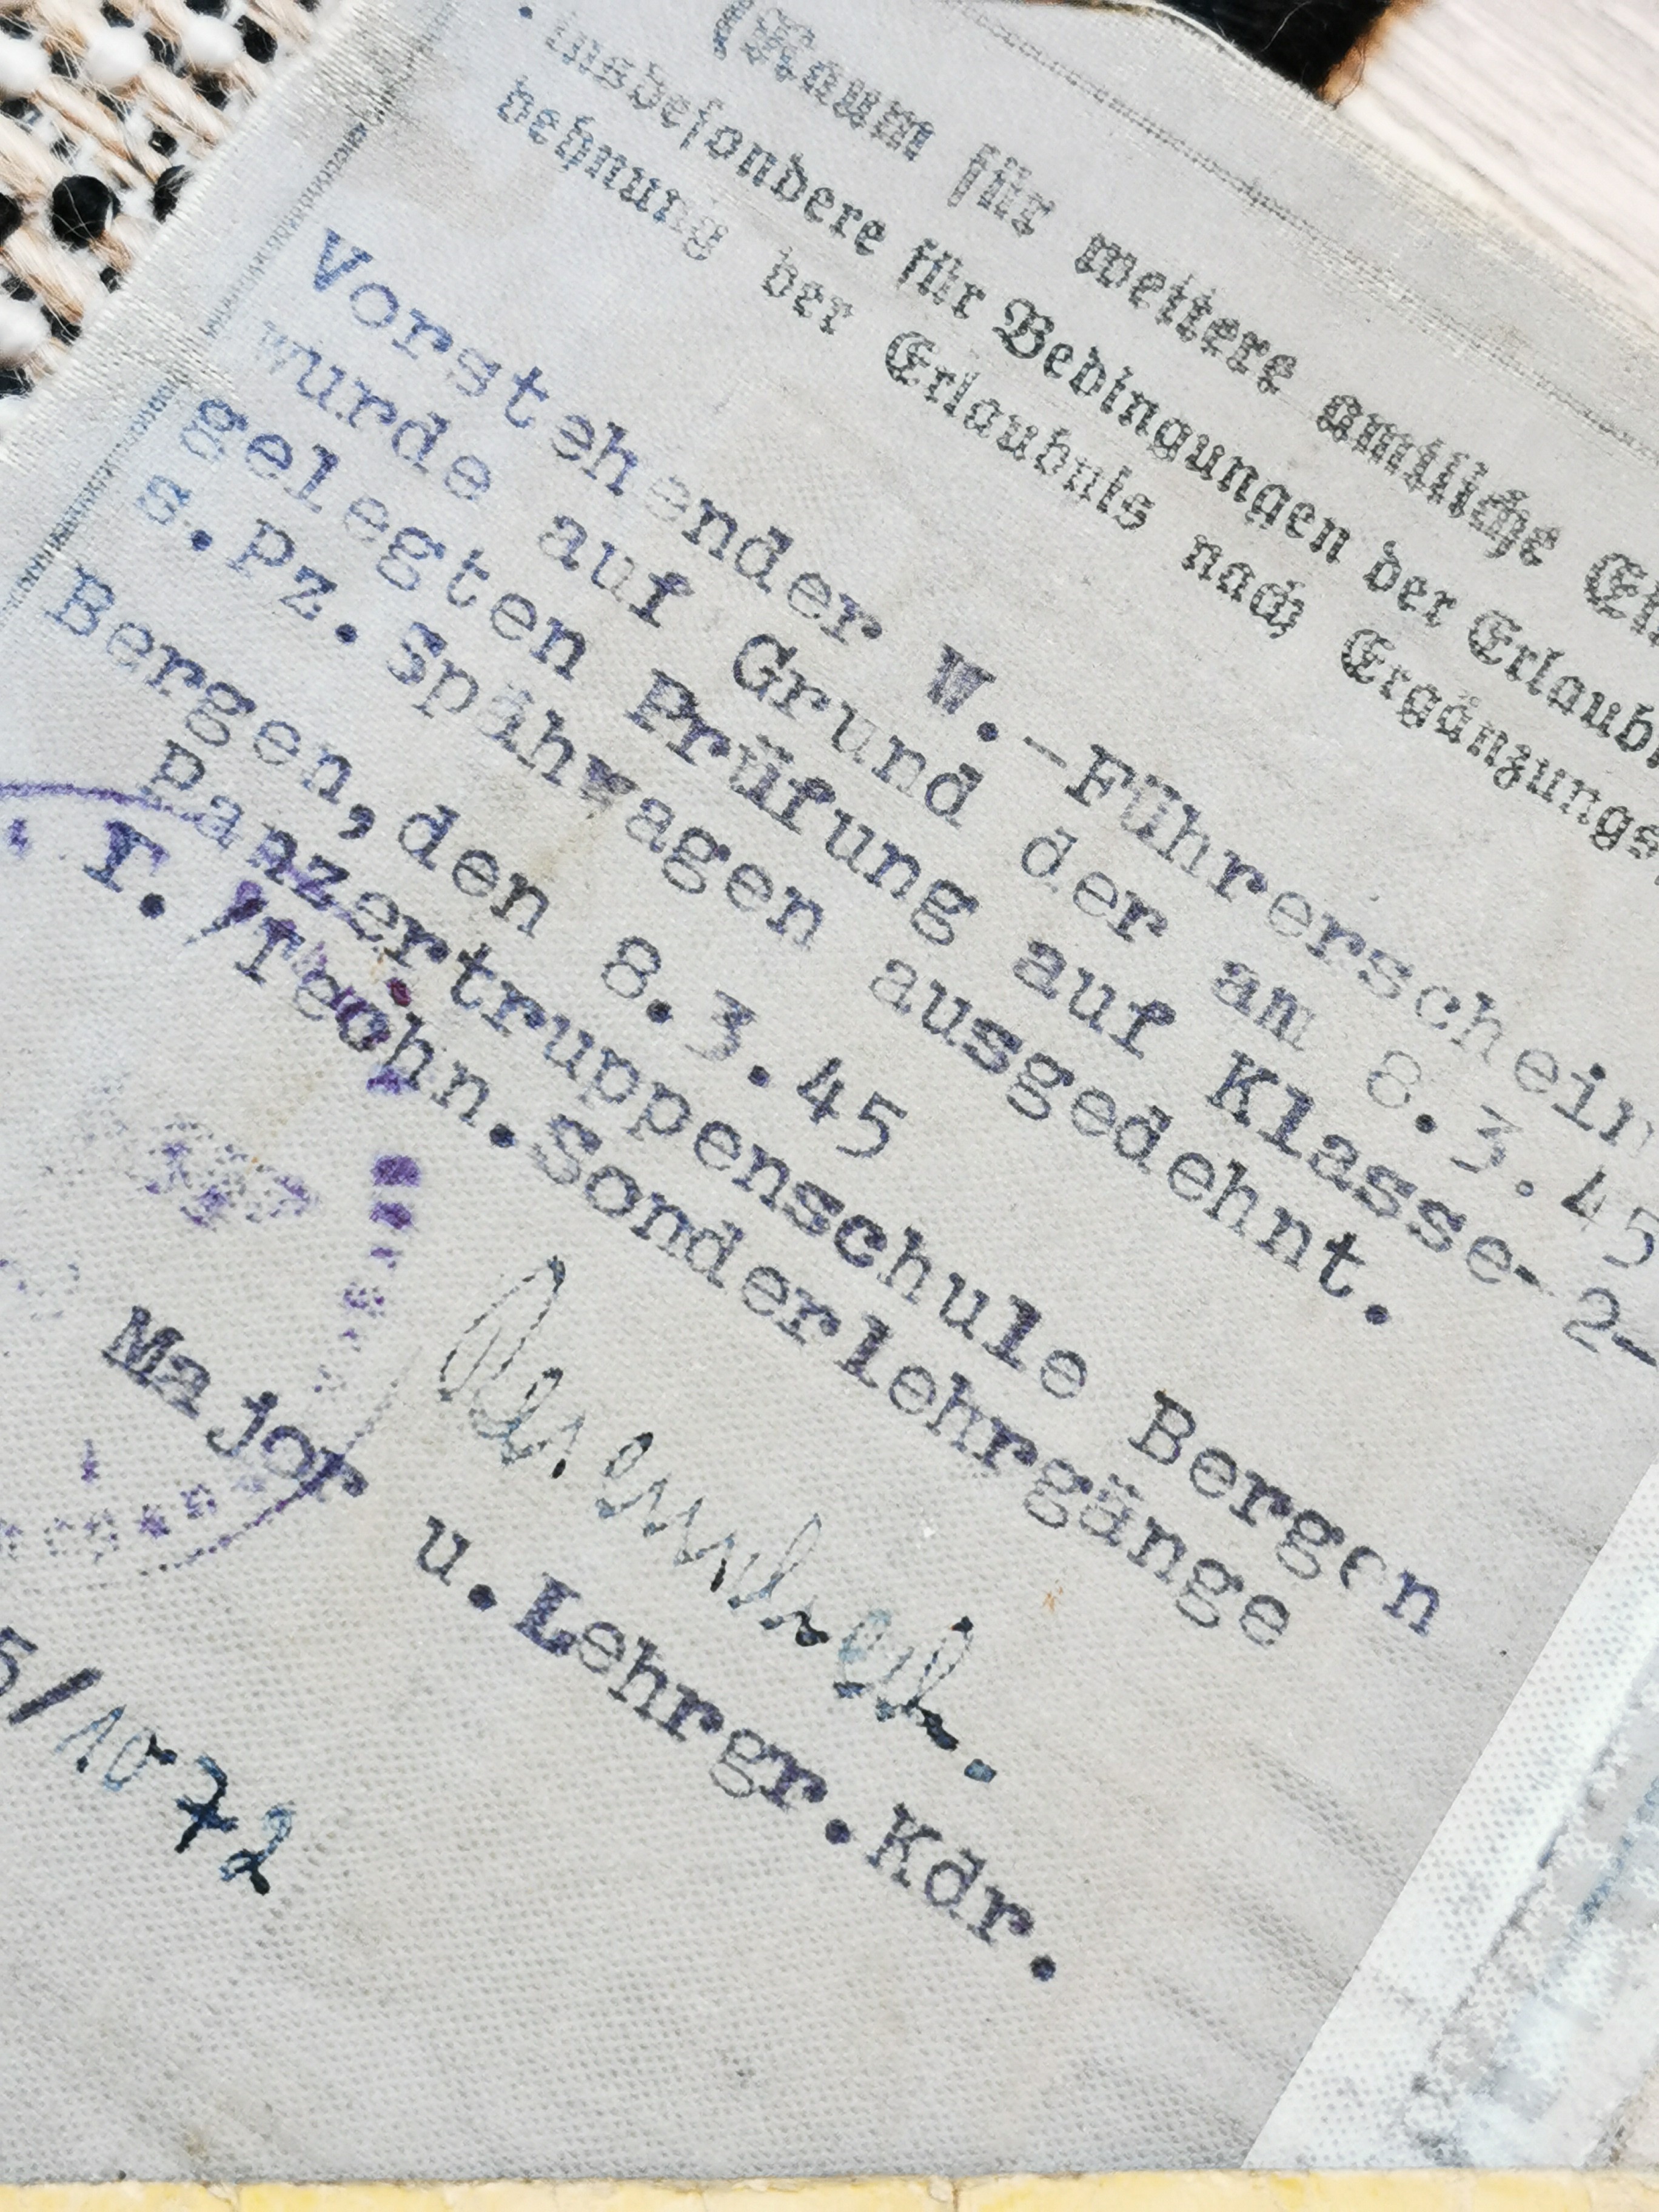 (Raum für weitere amtliche
insbesondere für Bedingungen der
dehnung der Erlaubnis nach
Vorstehender W.-Führerschein
wurde auf Grund der am 8.3.45
gelegten Prüfung auf Klasse- 2-
s.Pz.Spähwagen ausgedehnt.
Bergen, den 8.3.45
Panzertruppenschule Bergen
I./Techn.Sonderlehrgänge
Major u.Lehrgr.Kdr.
5/1072